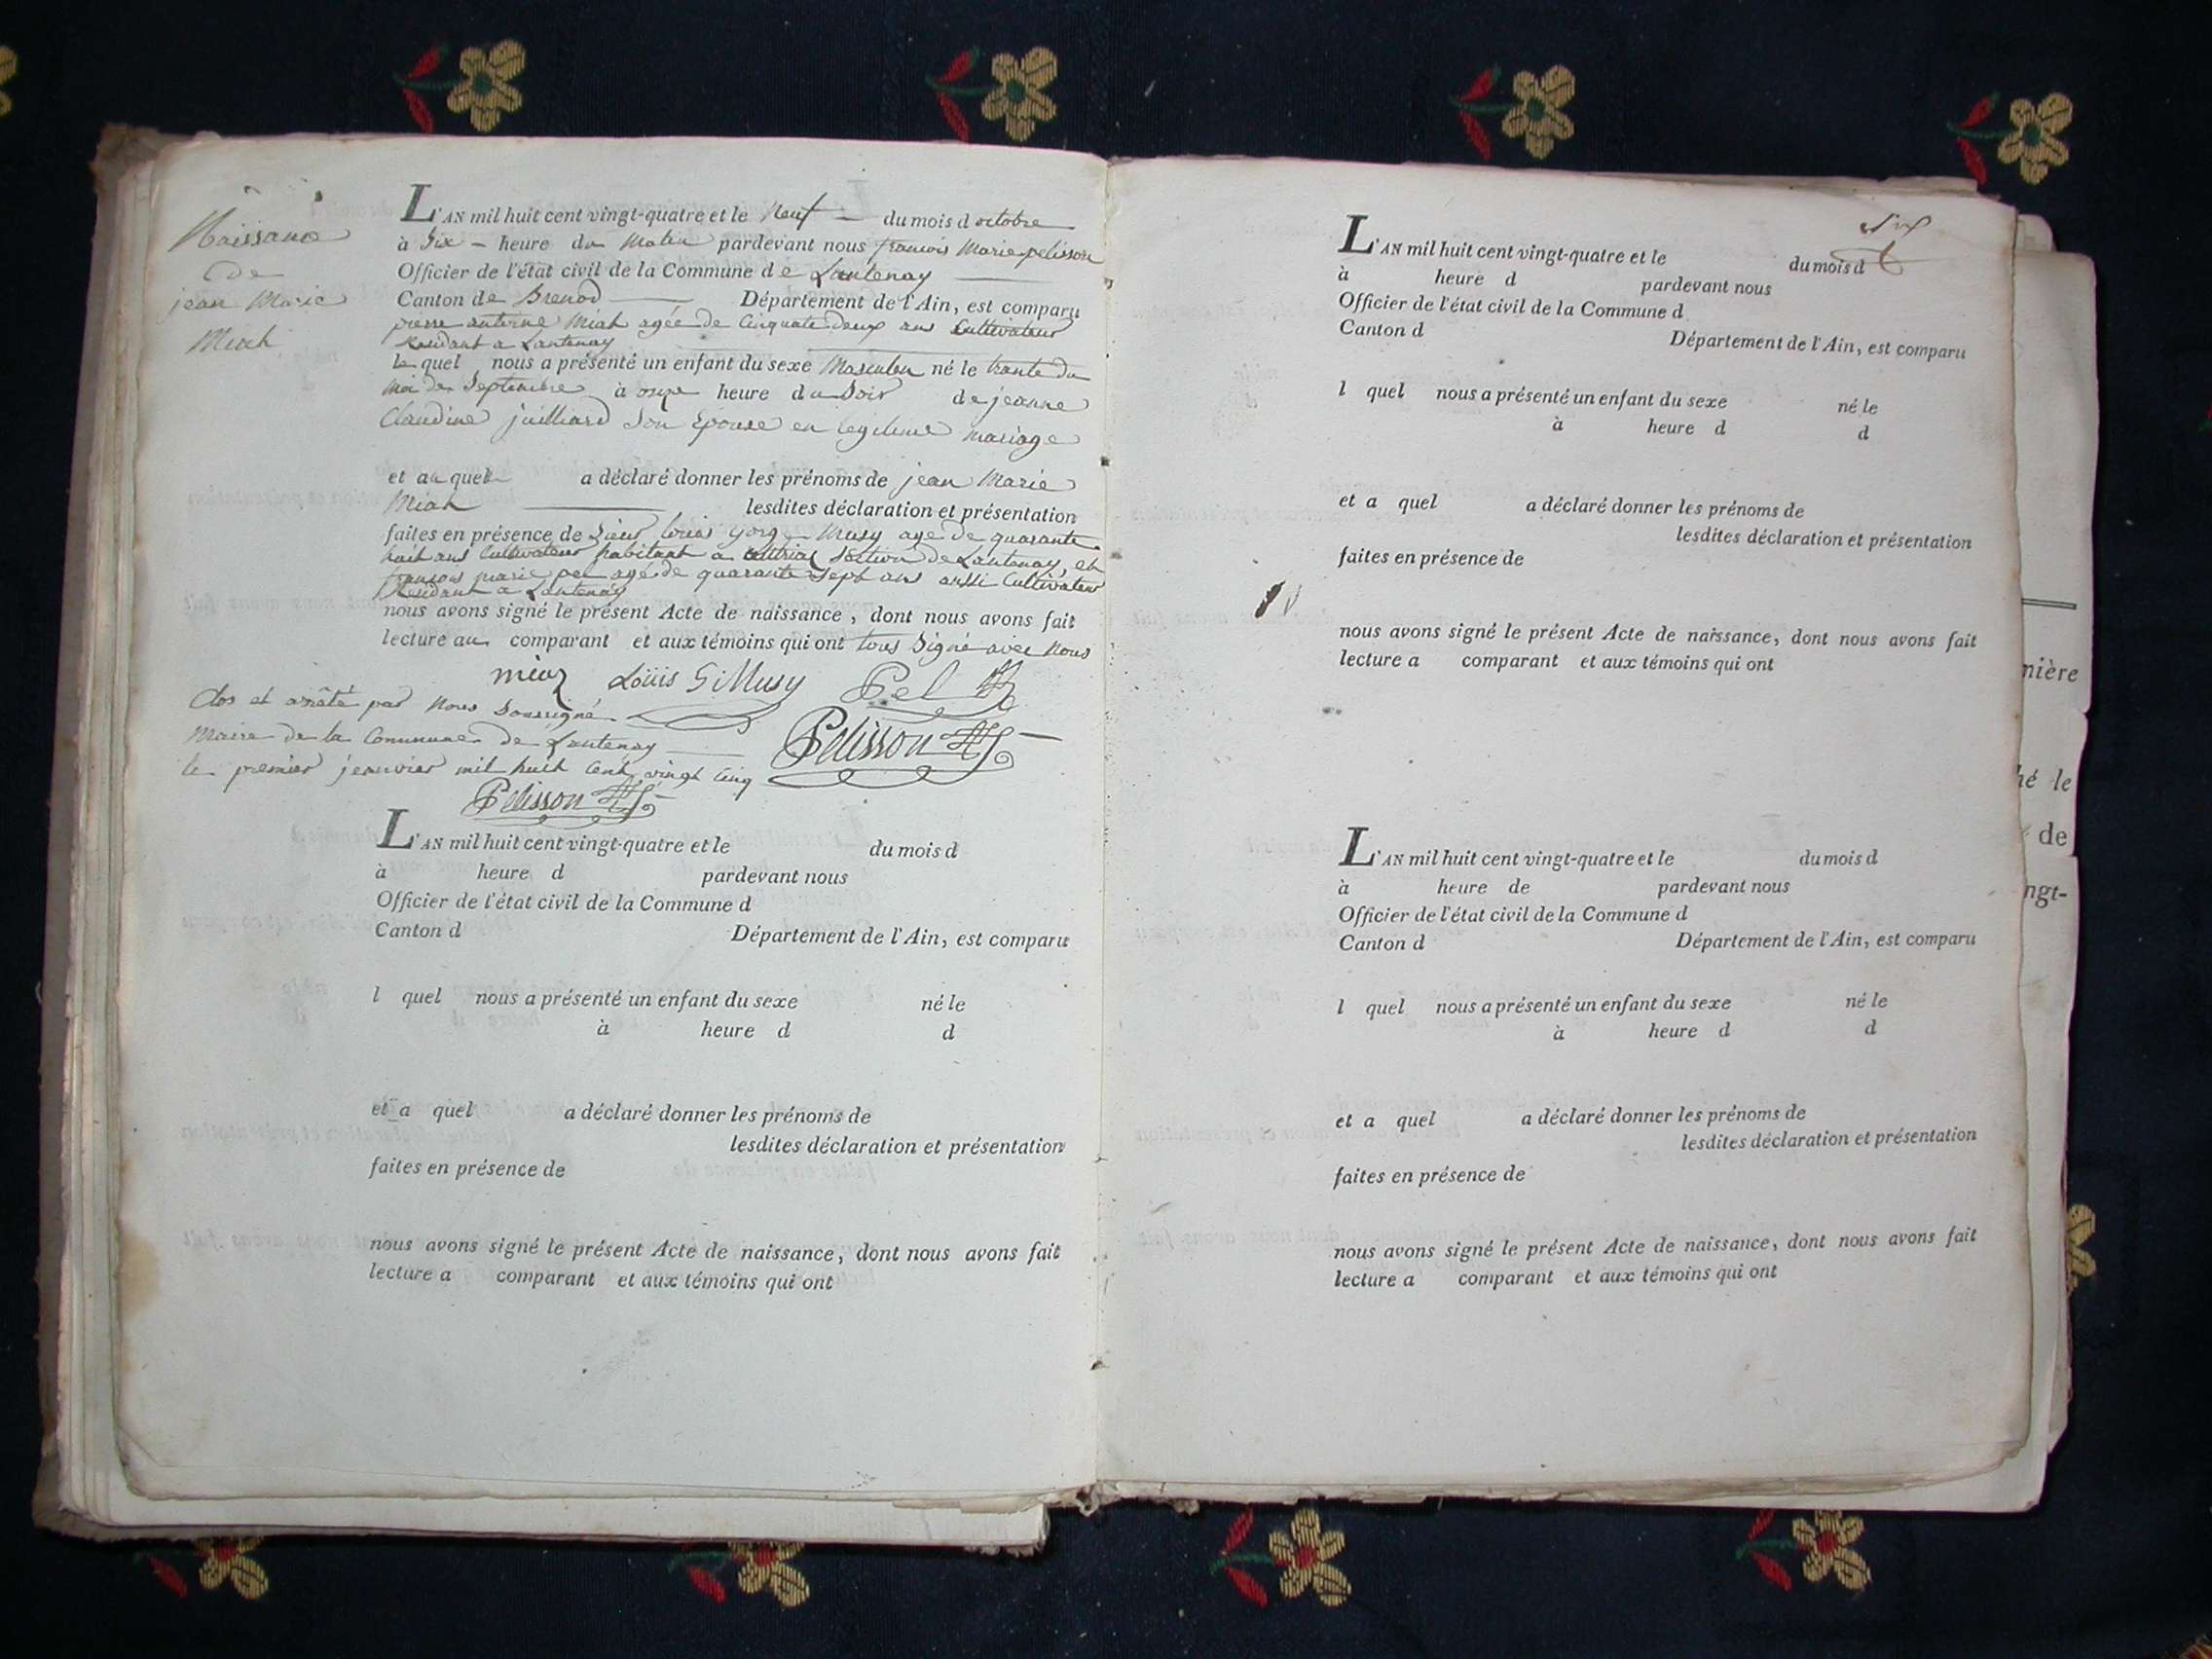 Naissance
de
jean Marie
Miah
L'AN mil huit cent vingt-quatre et le Neuf du mois d octobre
à Six heure du Matin pardevant nous francois Marie pelisson
Officier de l'état civil de la Commune de Lantenay
Canton de Brenod Département de l'Ain, est comparu
pierre antoine Miah agée de Cinquate deux ans Cultivateur
Residant a Lantenay
le quel nous a présenté un enfant du sexe Masculen né le trante du
moi de Septembre à onze heure du Soir de jeanne
Claudine juilliard Son Epouse en legitime mariage
et au quel a déclaré donner les prénoms de jean Marie
Miah lesdites déclaration et présentation
faites en présence de Sieur louis gorge Musy age de quarante
huit ans Cultivateur habitant a Section de Lantenay, et
francois marie pel agé de quarante Sept ans aussi Cultivateur
Residant a Lantenay
nous avons signé le présent Acte de naissance, dont nous avons fait
lecture au comparant et aux témoins qui ont tous Signé avec Nous
miaz Loüis G Musy Pel
Clos et arrêté par Nous Soussigné
Maire de la Commune de Lantenay Pelisson
le premier jeanvier mil huit Cent vingt Cinq
Pelisson
L'AN mil huit cent vingt-quatre et le du mois d
à heure d pardevant nous
Officier de l'état civil de la Commune d
Canton d Département de l'Ain, est comparu
l quel nous a présenté un enfant du sexe né le
à heure d d
et a quel a déclaré donner les prénoms de
lesdites déclaration et présentation
faites en présence de
nous avons signé le présent Acte de naissance, dont nous avons fait
lecture a comparant et aux témoins qui ont
Six
L'AN mil huit cent vingt-quatre et le du mois d
à heure d pardevant nous
Officier de l'état civil de la Commune d
Canton d Département de l'Ain, est comparu
l quel nous a présenté un enfant du sexe né le
à heure d d
et a quel a déclaré donner les prénoms de
lesdites déclaration et présentation
faites en présence de
nous avons signé le présent Acte de naissance, dont nous avons fait
lecture a comparant et aux témoins qui ont
L'AN mil huit cent vingt-quatre et le du mois d
à heure de pardevant nous
Officier de l'état civil de la Commune d
Canton d Département de l'Ain, est comparu
l quel nous a présenté un enfant du sexe né le
à heure d d
et a quel a déclaré donner les prénoms de
lesdites déclaration et présentation
faites en présence de
nous avons signé le présent Acte de naissance, dont nous avons fait
lecture a comparant et aux témoins qui ont
nière
hé le
de
ngt-